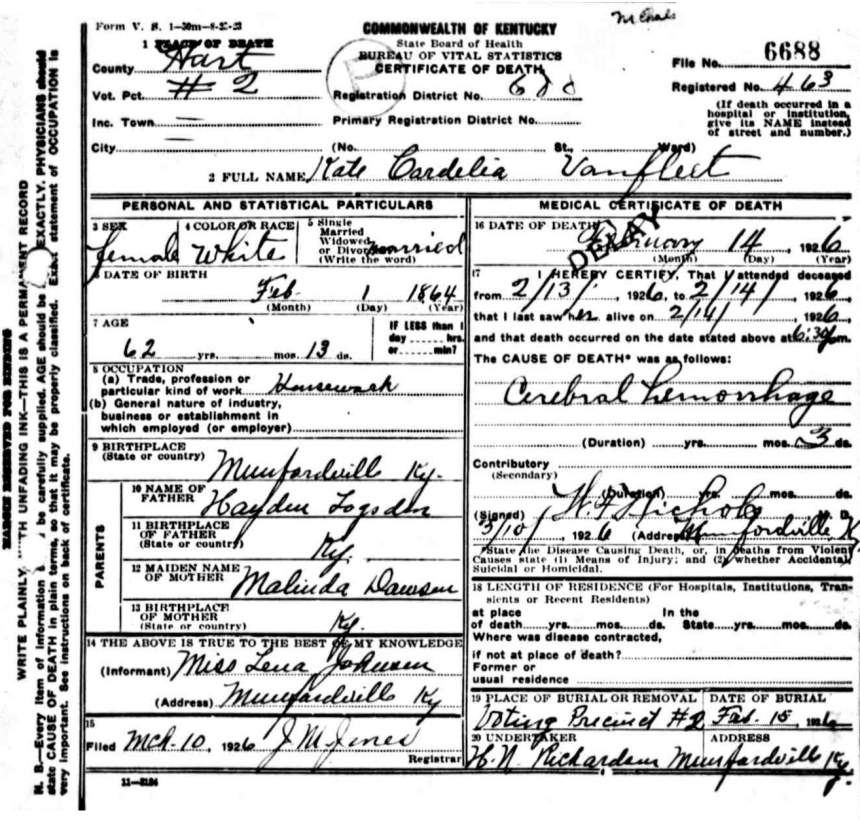 McChols
Form V. S. 1—30m—8-21-23
COMMONWEALTH OF KENTUCKY
State Board of Health
BUREAU OF VITAL STATISTICS
CERTIFICATE OF DEATH
1 PLACE OF DEATH
County Hart
File No. 6688
Vot. Pct. # 2
Registration District No. 600
Registered No. 463
Inc. Town
Primary Registration District No.
(If death occurred in a hospital or institution, give its NAME instead of street and number.)
City (No. St., Ward)
2 FULL NAME Kate Cordelia Vanfleet
PERSONAL AND STATISTICAL PARTICULARS
3 SEX female
4 COLOR OR RACE White
5 Single Married Widowed or Divorced married
(Write the word)
6 DATE OF BIRTH
Feb. 1 1864
(Month) (Day) (Year)
7 AGE
62 yrs. mos. 13 ds.
IF LESS than 1
day hrs.
or min?
8 OCCUPATION
(a) Trade, profession or
particular kind of work Housework
(b) General nature of industry,
business or establishment in
which employed (or employer)
9 BIRTHPLACE
(State or country) Munfordville Ky.
PARENTS
10 NAME OF
FATHER Hayden Logsden
11 BIRTHPLACE
OF FATHER
(State or country) Ky.
12 MAIDEN NAME
OF MOTHER Malinda Dawson
13 BIRTHPLACE
OF MOTHER
(State or country) Ky.
14 THE ABOVE IS TRUE TO THE BEST OF MY KNOWLEDGE
(Informant) Miss Lena Johnson
(Address) Munfordville Ky
15
Filed Mch. 10, 1926 J M Jones
Registrar
11—3184
MEDICAL CERTIFICATE OF DEATH
DELAY
16 DATE OF DEATH
February 14, 1926
(Month) (Day) (Year)
17 I HEREBY CERTIFY, That I attended deceased
from 2/13/, 1926, to 2/14/, 1926,
that I last saw her alive on 2/14/, 1926
and that death occurred on the date stated above at 6:30 pm.
The CAUSE OF DEATH* was as follows:
Cerebral hemorrhage
(Duration) yrs. mos. 3 ds.
Contributory
(Secondary)
(Duration) yrs. mos. ds.
(Signed) Nichols M. D.
3/10/, 1926 (Address) Munfordville, Ky
*State the Disease Causing Death, or, in deaths from Violent
Causes state (1) Means of Injury; and (2) whether Accidental,
Suicidal or Homicidal.
18 LENGTH OF RESIDENCE (For Hospitals, Institutions, Tran-
sients or Recent Residents)
at place In the
of death yrs. mos. ds. State yrs. mos. ds.
Where was disease contracted,
if not at place of death?
Former or
usual residence
19 PLACE OF BURIAL OR REMOVAL DATE OF BURIAL
Voting Precinct #2 Feb. 15, 1926
20 UNDERTAKER ADDRESS
H. N. Richardson Munfordville Ky.
MARGIN RESERVED FOR BINDING
WRITE PLAINLY WITH UNFADING INK—THIS IS A PERMANENT RECORD
N. B.—Every item of information be carefully supplied. AGE should be EXACTLY. PHYSICIANS should
state CAUSE OF DEATH in plain terms, so that it may be properly classified. Exact statement of OCCUPATION is
very important. See instructions on back of certificate.